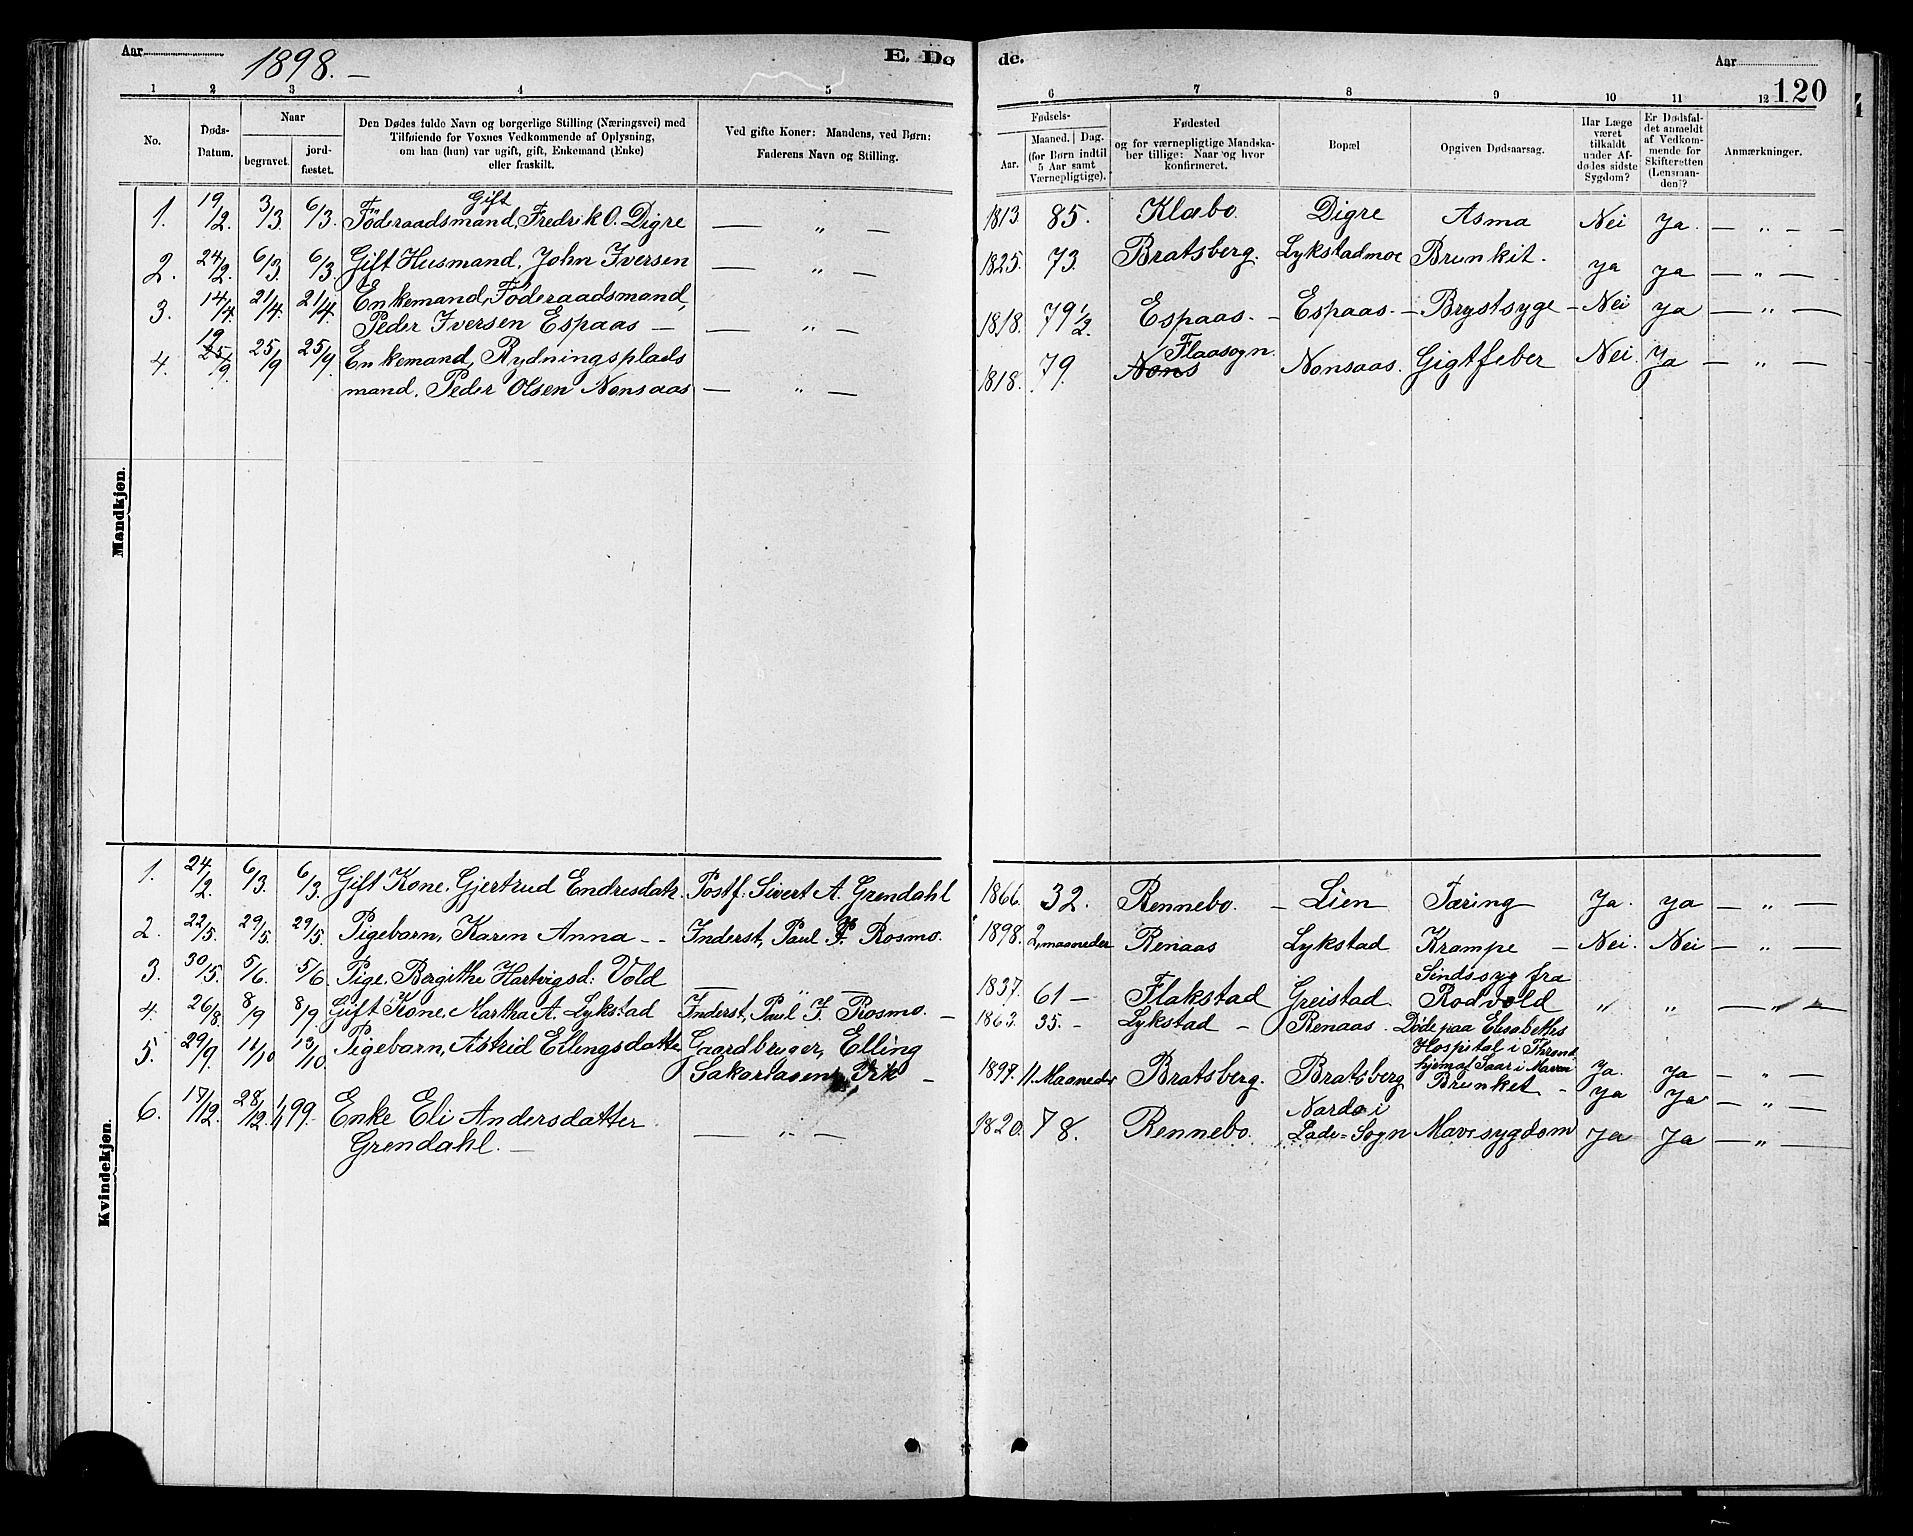 Aar 1898. —
E. Dø
de.
Aar
120
1 2 3 4 5
6 7 8 9 10 11 12
No.
Døds-Datum.
Naar
begravet.
jord-fæstet.
Den Dødes fulde Navn og borgerlige Stilling (Næringsvei) med
Tilføiende for Voxnes Vedkommende af Oplysning,
om han (hun) var ugift, gift, Enkemand (Enke)
eller fraskilt.
Ved gifte Koner: Mandens, ved Børn:
Faderens Navn og Stilling.
Fødsels-
Aar.
Maaned. Dag.
(for Børn indtil
5 Aar samt
Værnepligtige).
Fødested
og for værnepligtige Mandska-
ber tillige: Naar og hvor
konfirmeret.
Bopæl
Opgiven Dødsaarsag.
Har Læge
været
tilkaldt
under Af-
dødes sidste
Sygdom?
Er Dødsfal-
det anmeldt
af Vedkom-
mende for
Skifteretten
(Lensman-
den)?
Anmærkninger.
Mandkjøn.
Gift
1. 19/2. 3/3. 6/3. Föderaadsmand, Fredrik O. Digre — " — 1813. 85. Klæbo. Digre Asma Nei ja. — " — —
2. 24/2. 6/3. 6/3. Gift Husmand, John Iversen — " — 1825. 73. Bratsberg. Lykstadmoe Brunkit. ja ja — " —
3. 14/4. 21/4. 21/4. Enkemand, Föderaadsmand,
Peder Iversen Espaas — — " — 1818. 79 1/2. Espaas. — Espaas. — Brystsyge — Nei ja — " —
4. 19 25/9. 25/9 25/9. Enkemand, Rydningsplads
mand, Peder Olsen Nonsaas — " — 1818. 79. Nons Flaasogn. Nonsaas. Gigtfeber Nei. Ja — " —
Kvindekjøn.
1. 24/2. 6/3. 6/3. Gift Kone, Gjertrud Endresdatr. Postf: Sivert A. Grendahl 1866. 32. Rennebo. — Lien Tæring Ja. ja — " —
2. 22/5. 29/5. 29/5. Pigebarn, Karen Anna - - Inderst, Paul Rosmo. 1898. 2, maaneder Renaas Lykstad Krampe — Nei. Nei — " —
3. 30/5. 5/6. 5/6. Pige. Bergithe Hartvigsd: Vold — " — 1837. 61 — Flakstad Greistad Sindssyg fra
Rodvold " " — " —
4. 26/8. 8/9 8/9. Gift Kone, Martha A. Lykstad Inderst, Paul J. Rosmo. — 1863. 35. - Lykstad — Renaas. Døde paa Elisabeths
Hospital i Thrond
hjem af Saar i Maven Ja. ja — " —
5. 29/9. 11/10 13/10. Pigebarn, Astrid Ellingsdatter Gaardbruger, Elling
Sakariasen — 1897. 11. Maaneder Bratsberg. Bratsberg Brunket — ja ja — " —
6. 17/12. 28/12. 1/1 99. Enke Eli Andersdatter
Grendahl. — — " — 1820. 78. Rennebo. Nardo i
Lade=Sogn Mavesygdom ja Ja — " —